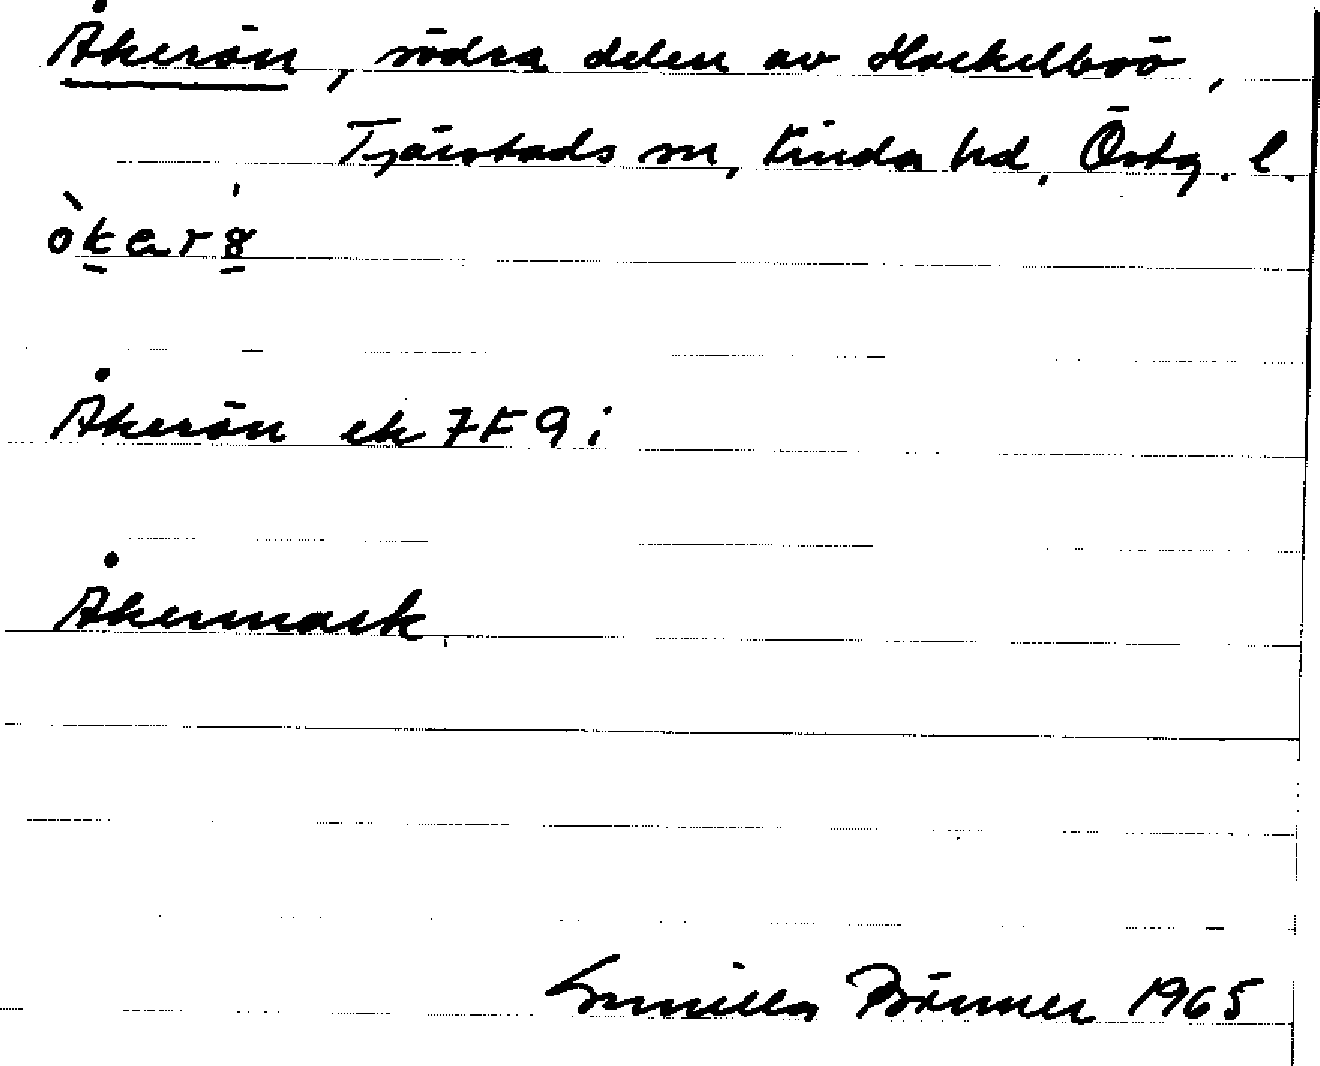 Åkerön, södra delen av Hackelboö,
Tjärstads sn, Kinda hd, Östg. l.
Åkerön ek 7F 9 i
Åkermark.
Gunilla Börmer 1965